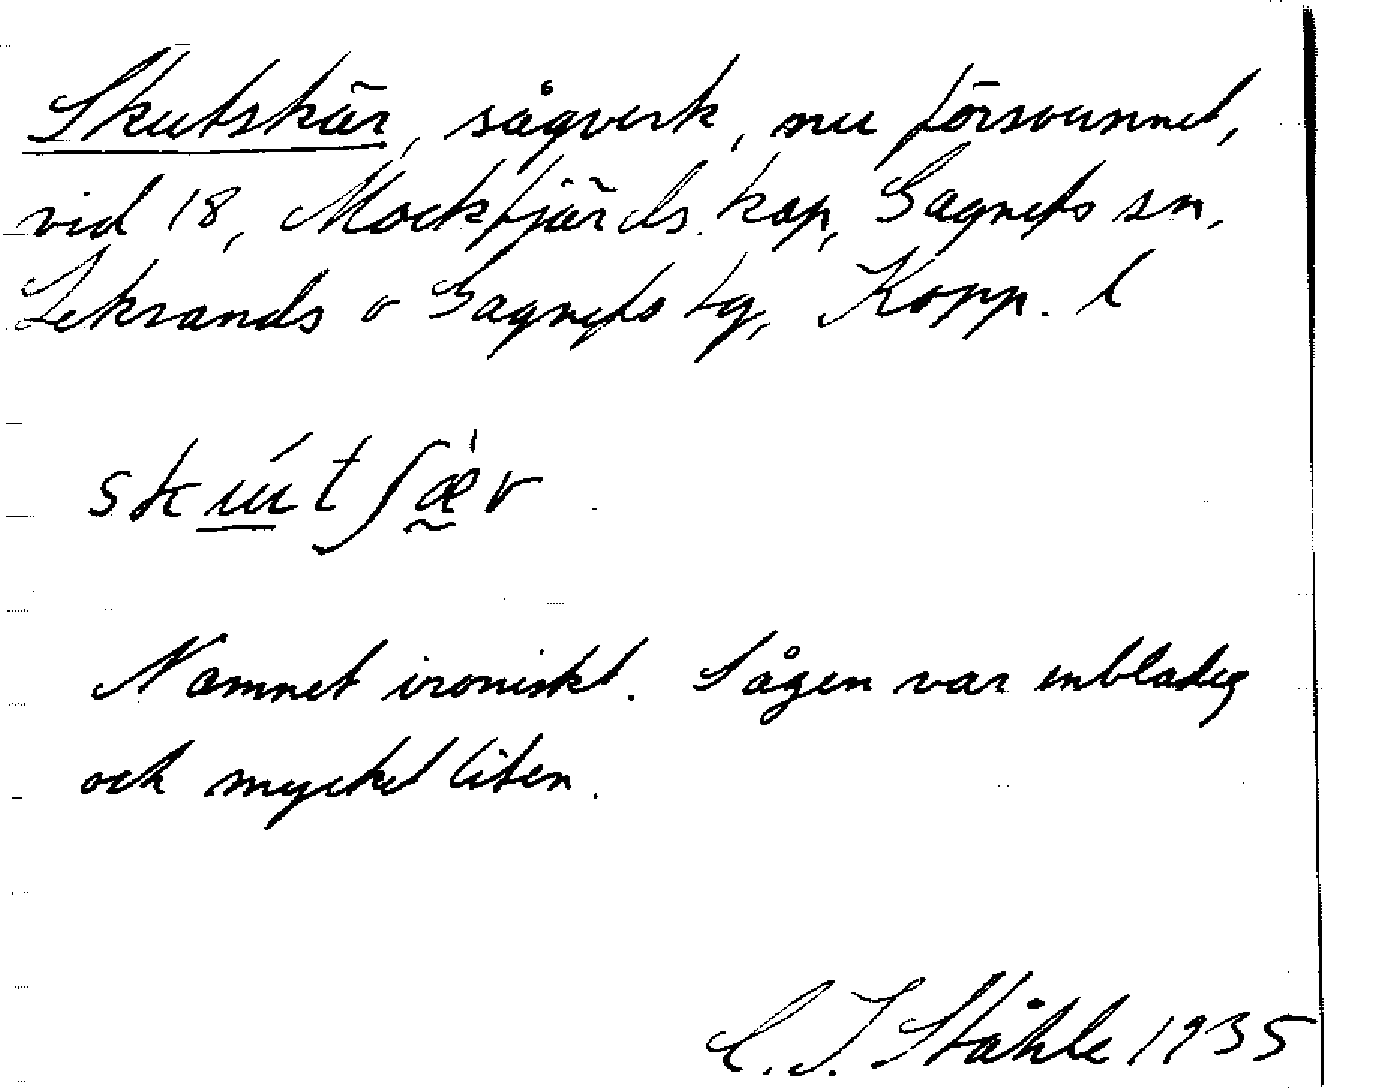 Skutskär, sågverk, nu försvunnet,
vid 18, Mockfjärds kap, Gagnefs sn,
Leksands o Gagnefs tg, Kopp. l
Namnet ironiskt. Sågen var enbladig
och mycket liten.
C. I. Ståhle 1935